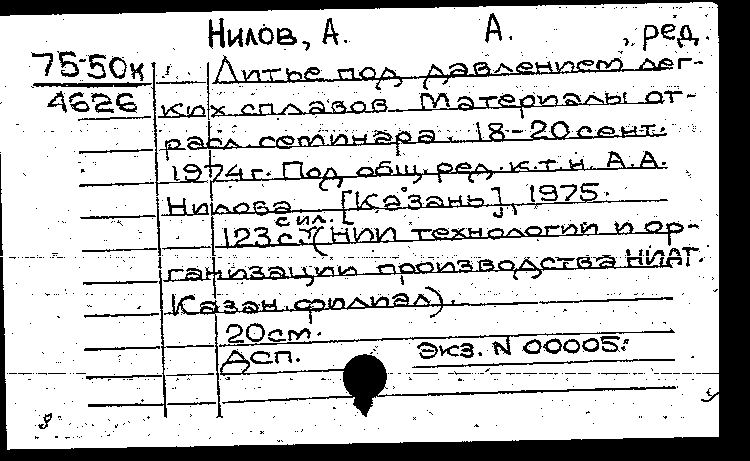 Нилов, А. А. , ред.
75-50к Литье под давлением лег-
4626 ких сплавов. Материалы от-
расл. семинара. 18-20 сент.
1974 г. Под общ. ред. к.т.н. А.А.
Нилова. [Казань], 1975.
с ил.
123 с. (НИИ технологии и ор-
ганизации производства НИАТ.
Казан. филиал).
20 см.
Дсп. Экз. N 00005: